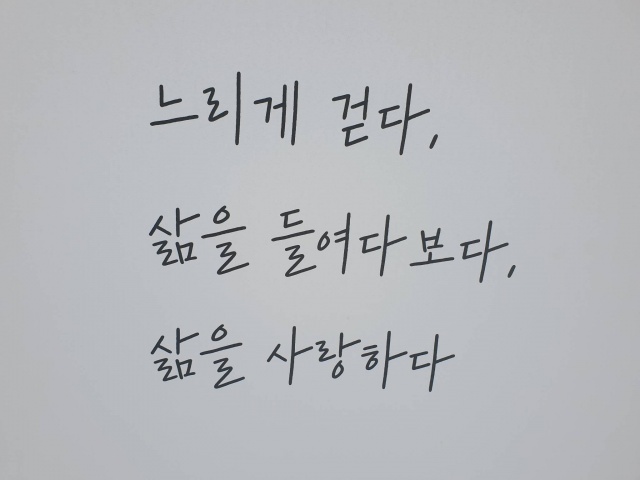 느리게 걷다,
삶을 들여다보다,
삶을 사랑하다